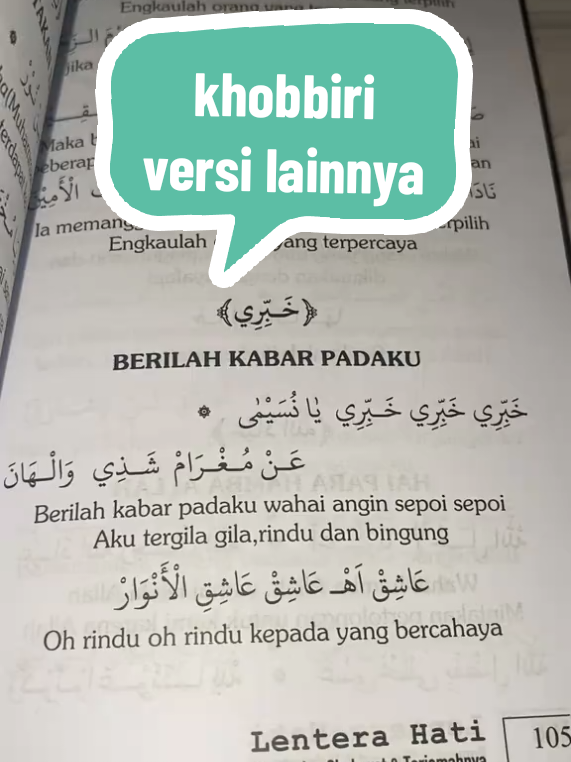 Engkaulah orang yang terpilih
khobbiri
versi lainnya
jika
Maka
Ia memang
terpilih
Engkaulah yang terpercaya
﴿خَبِّرِي﴾
BERILAH KABAR PADAKU
خَبِّرِي خَبِّرِي خَبِّرِي يَا نُسَيْمٰى ۞
عَنْ مُغْرَامْ شَذِي وَالْهَانَ
Berilah kabar padaku wahai angin sepoi sepoi
Aku tergila gila,rindu dan bingung
عَاشِقْ اَهْـ عَاشِقْ عَاشِقِ الْأَنْوَارْ
Oh rindu oh rindu kepada yang bercahaya
Lentera Hati
105